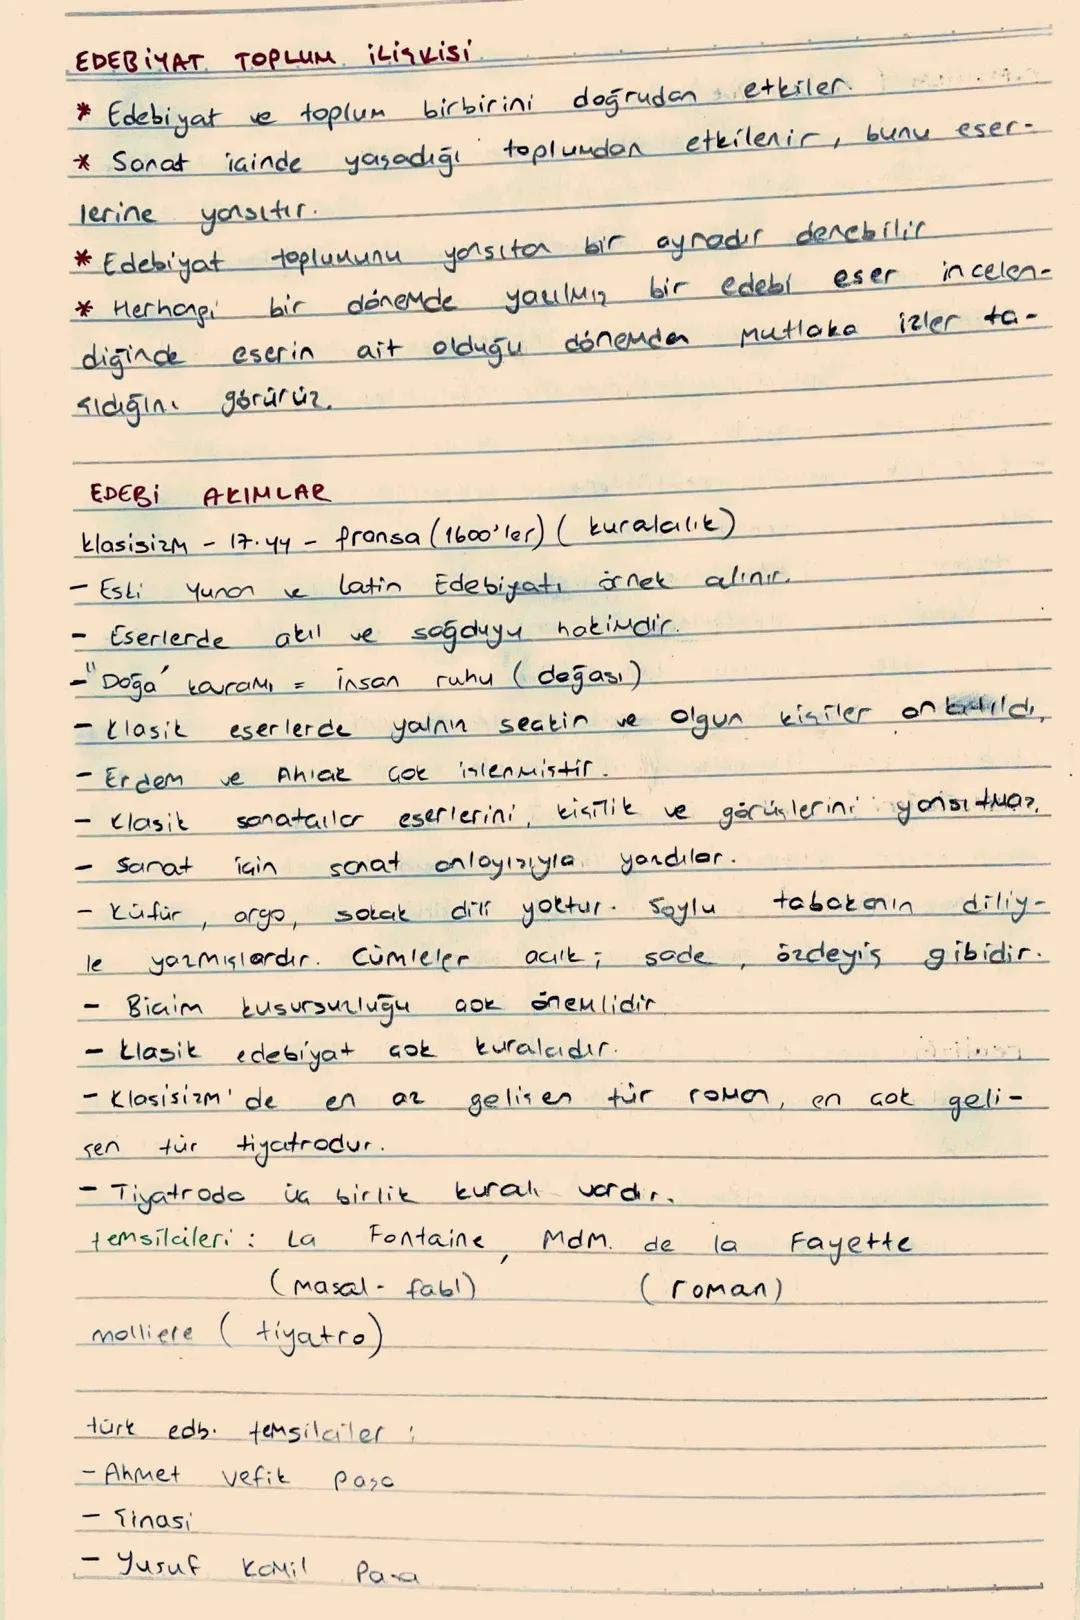 EDEBİYAT TOPLUM İLİŞKİSİ
* Edebiyat ve toplum birbirini doğrudan etkiler.
* Sanat içinde yaşadığı toplumdan etkilenir, bunu eser-
lerine yansıtır.
* Edebiyat toplumunu yansıtan bir aynadır denebilir
* Herhangi bir dönemde yazılmış bir edebi eser incelen-
diğinde eserin ait olduğu dönemden mutlaka izler ta-
şıdığını görürüz.
EDEBİ AKIMLAR
klasisizm - 17.yy - fransa (1600'ler) (kuralcılık)
- Eski Yunan ve Latin Edebiyatı örnek alınır.
- Eserlerde akıl ve sağduyu hakimdir.
- "Doğa" kavramı = insan ruhu (doğası)
- Klasik eserlerde yalnın seçkin ve olgun kişiler anlatıldı.
- Erdem ve Ahlak çok işlenmiştir.
- Klasik sanatçılar eserlerini, kişilik ve görüşlerini yansıtmaz.
- Sanat için sanat anlayışıyla yazdılar.
- Küfür, argo, sokak dili yoktur. Soylu tabakanın diliy-
le yazmışlardır. Cümleler açık; sade, özdeyiş gibidir.
- Biçim kusursuzluğu çok önemlidir
- Klasik edebiyat çok kuralcıdır.
- Klasisizm'de en az gelişen tür roman, en çok geli-
şen tür tiyatrodur.
- Tiyatroda üç birlik kuralı vardır.
temsilcileri: La Fontaine, Mdm. de la Fayette
(masal-fabl) (roman)
molliere (tiyatro)
türk edb. temsilciler:
- Ahmet vefik paşa
- Şinasi
- Yusuf Kamil Paşa